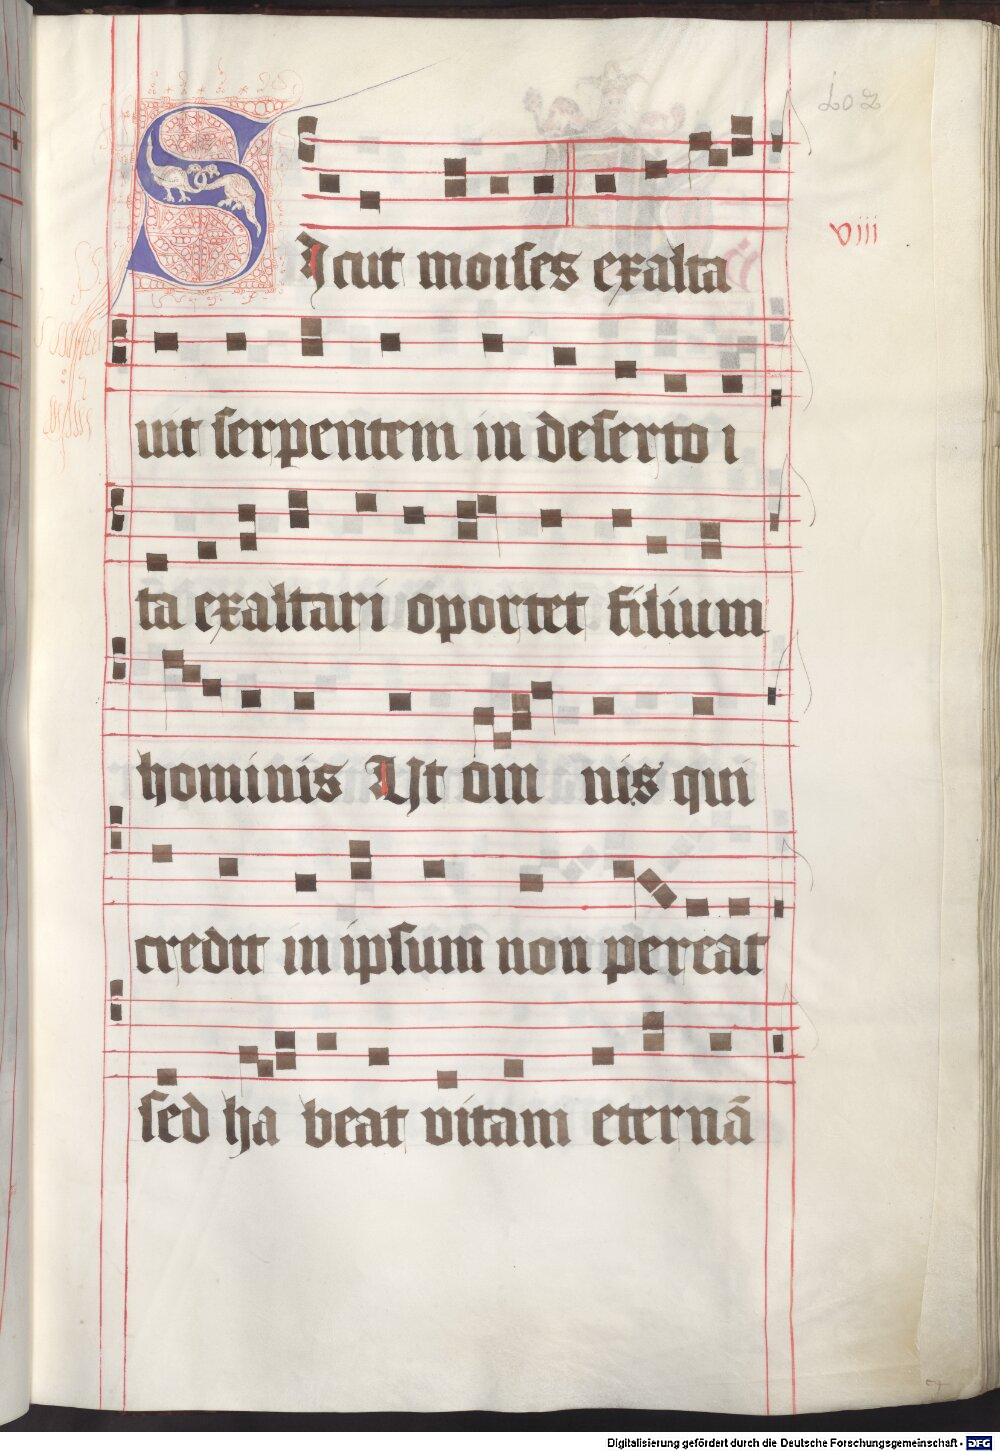 102
Sicut moises exalta
viii
uit serpentem in deserto i
ta exaltari oportet filium
hominis Ut om nis qui
credit in ipsum non pereat
sed ha beat vitam eternā
Digitalisierung gefördert durch die Deutsche Forschungsgemeinschaft - DFG